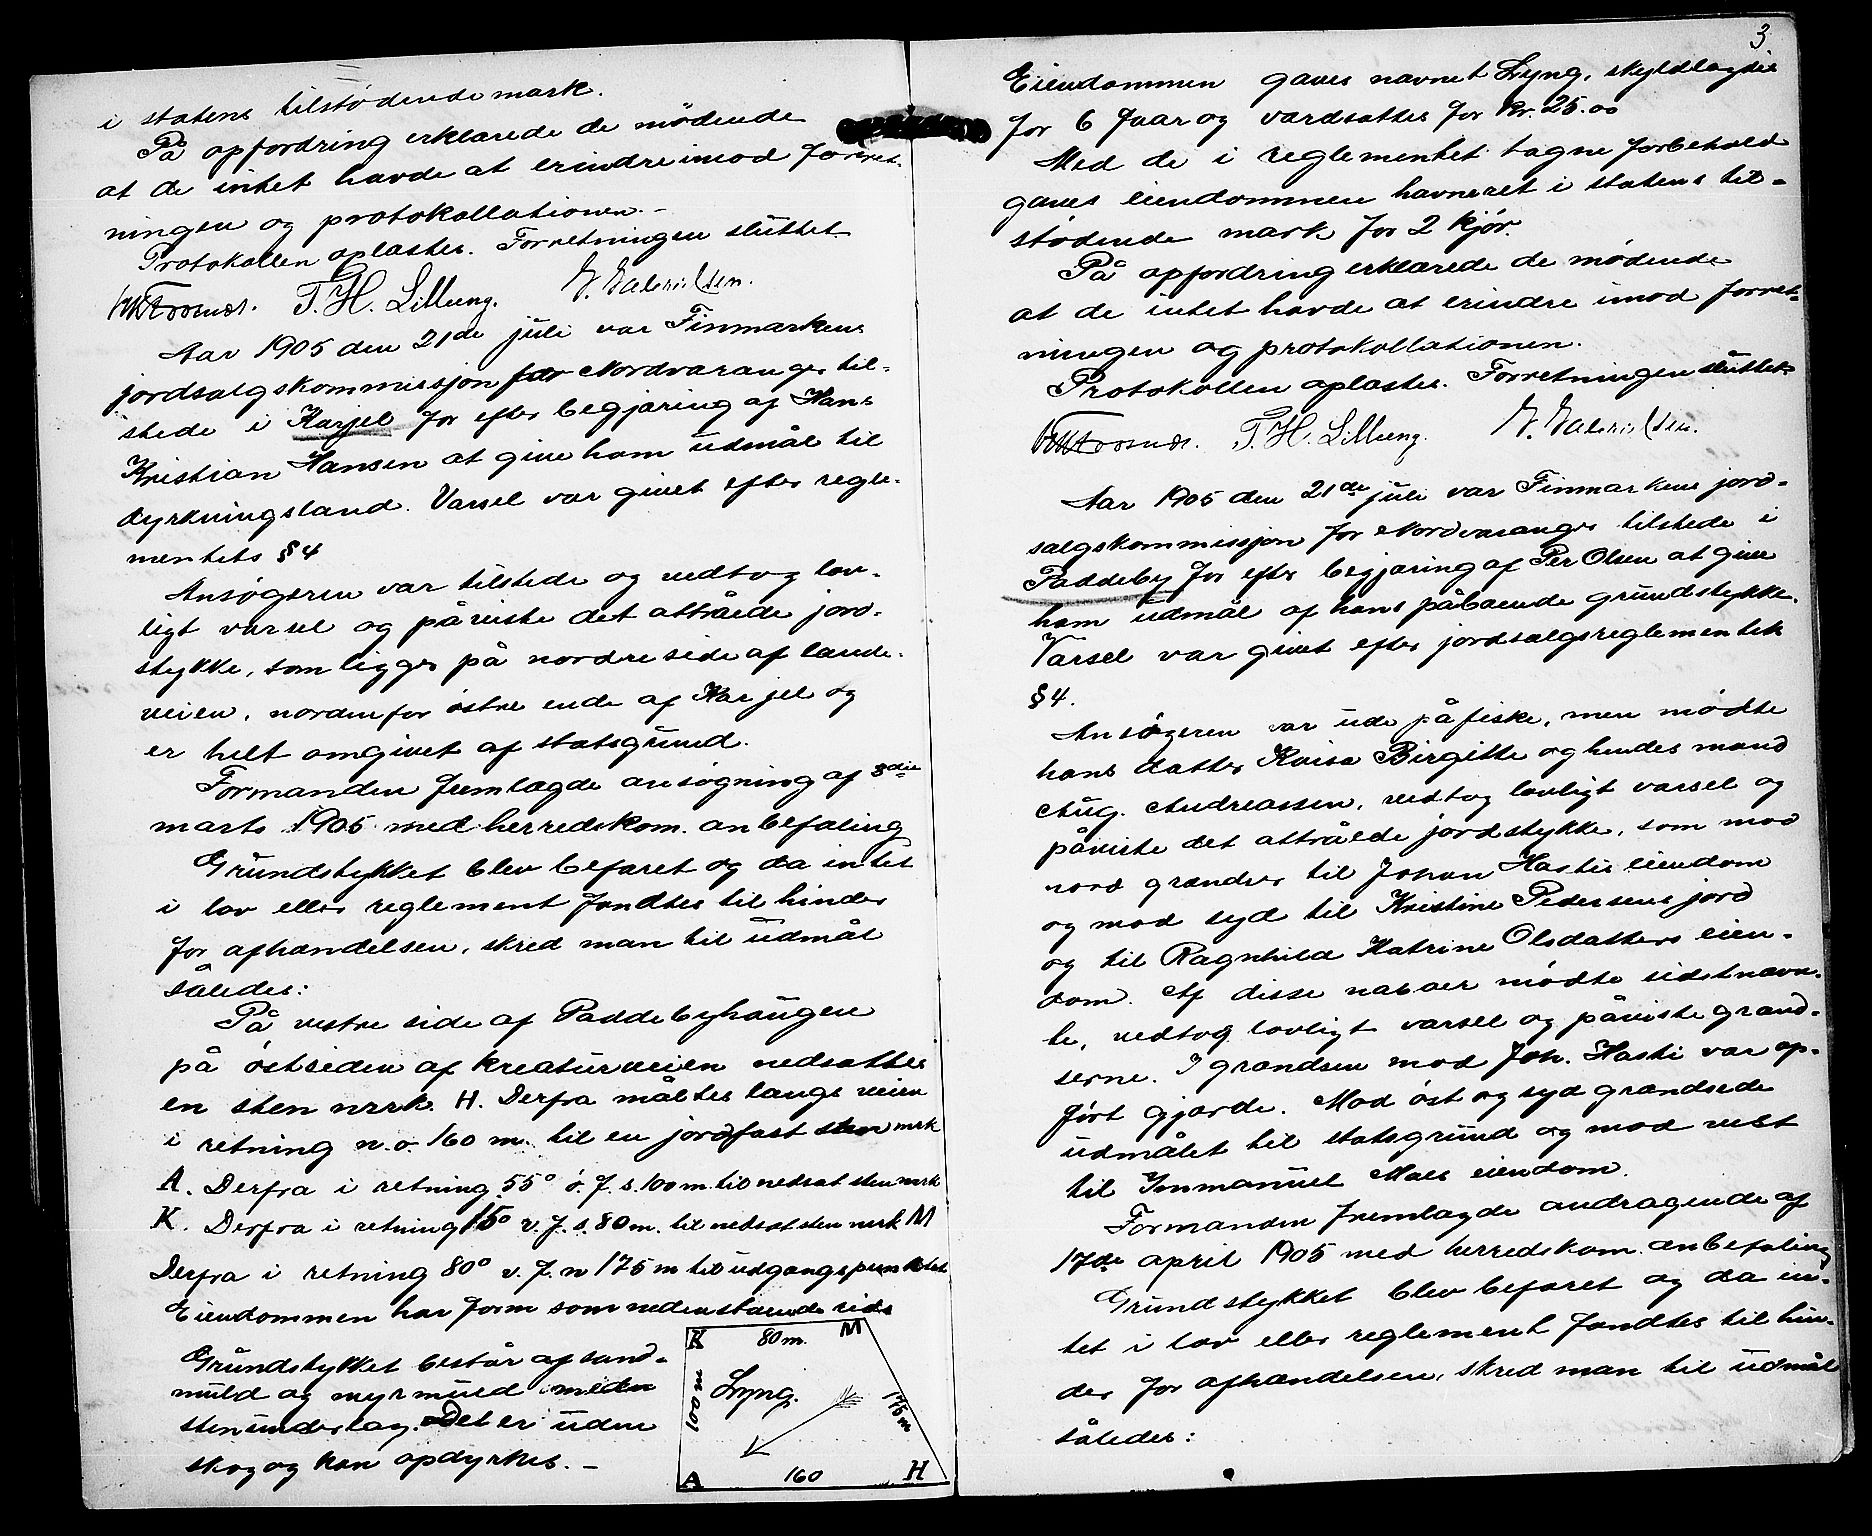 i statens tilstødende mark.
På opfordring erklærede de mødende
at de intet havde at erindre imod forret-
ningen og protokollationen.-
Protokollen oplæstes. Forretningen sluttet
T. H. Lilleeng. E. Gabrielsen.
Aar 1905 den 21de juli var Finmarkens
jordsalgskommissjon for Nordvaranger til-
stede i Karjel for efter begjæring af Hans
Kristian Hansen at give ham udmål til
dyrkningsland. Varsel var givet efter regle-
mentets § 4
Ansøgeren var tilstede og vedtog lov-
ligt varsel og påviste det attråede jord-
stykke, som ligger på nordre side af lande-
veien, nordenfor østre ende af Karjel og
er helt omgivet af statsgrund.
Formanden fremlægde ansøgning af 8die
marts 1905 med herredskom. anbefaling
Grundstykket blev befaret og da intet
i lov eller reglement fandtes til hinder
for afhændelsen, skred man til udmål
således:
På vestre side af Paddebyhaugen
på østsiden af kreaturveien nedsattes
en sten mrk. H. Derfra måltes langs veien
i retning n.o. 160 m. til en jordfast sten mrk
A. Derfra i retning 55° ø. f. s. 100 m. til nedsat sten mrk
K. Derfra i retning 15° v. f. s. 80 m. til nedsat sten mrk M
Derfra i retning 80° v. f. n 175 m til udgangspunktet
Eiendommen har form som nedenstående rids
Grundstykket består af sand-
muld og myrmuld med
stenunderlag. Det er uden
skog og kan opdyrkes.-
K 80 m. M
100 m Lyng. 175 m
A 160 H
3
Eiendommen gaves navnet Lyng, skyldlagdes
for 6 faar og værdsattes for kr. 25.00
Med de i reglementet tagne forbehold
gaves eiendommen havneret i statens til-
stødende mark for 2 kjør.
På opfordring erklærede de mødende
at de intet havde at erindre imod forret-
ningen og protokollationen.
Protokollen oplæstes. Forretningen sluttet
T. H. Lilleeng. E. Gabrielsen.
Aar 1905 den 21de juli var Finmarkens jord-
salgskommissjon for Nordvaranger tilstede i
Paddeby for efter begjæring af Per Olsen at give
ham udmål af hans påboende grundstykke.
Varsel var givet efter jordsalgsreglementets
§ 4.
Ansøgeren var ude på fiske, men mødte
hans datter Kaisa Birgitte og hendes mand
Aug. Andreassen, vedtog lovligt varsel og
påviste det attråede jordstykke, som mod
nord grændser til Johan Hastis eiendom
og mod syd til Kristine Pedersens jord
og til Ragnhild Katrine Olsdatters eien-
dom. Af disse naboer mødte sidstnævn-
te, vedtog lovligt varsel og påviste grænd-
serne. I grændsen mod Joh. Hasti var op-
ført gjærde. Mod øst og syd grændsede
udmålet til statsgrund og mod vest
til Immanuel Maes eiendom.
Formanden fremlagde andragende af
17de april 1905 med herredskom. anbefaling
Grundstykket blev befaret og da in-
tet i lov eller reglement fandtes til hin-
der for afhændelsen, skred man til udmål
således: